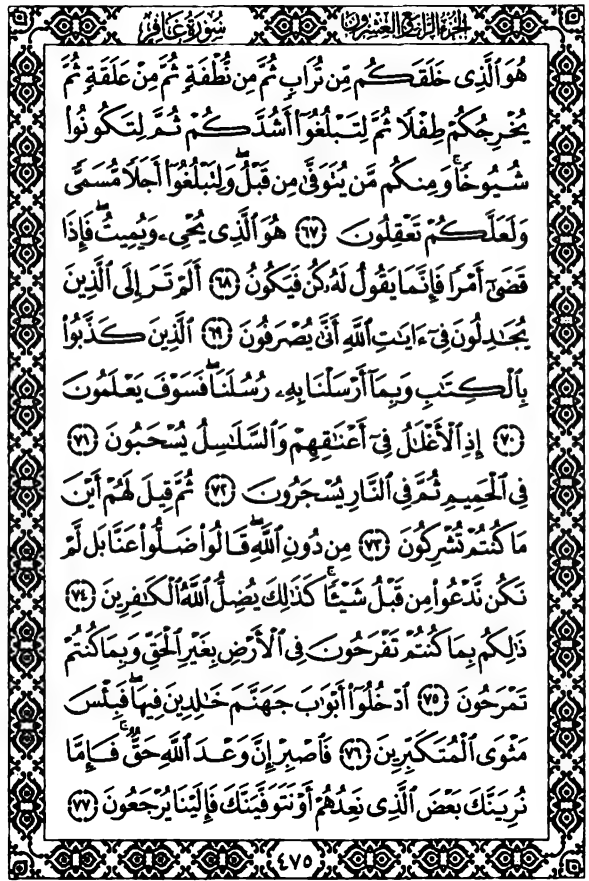 سُورَةُ غَافِرٍ الجُزْءُ الرَّابِعُ وَالْعِشْرُونَ
هُوَ ٱلَّذِى خَلَقَكُم مِّن تُرَابٍ ثُمَّ مِن نُّطْفَةٍ ثُمَّ مِنْ عَلَقَةٍ ثُمَّ
يُخْرِجُكُمْ طِفْلًا ثُمَّ لِتَبْلُغُوٓا۟ أَشُدَّكُمْ ثُمَّ لِتَكُونُوا۟
شُيُوخًا ۚ وَمِنكُم مَّن يُتَوَفَّىٰ مِن قَبْلُ ۖ وَلِتَبْلُغُوٓا۟ أَجَلًا مُّسَمًّى
وَلَعَلَّكُمْ تَعْقِلُونَ ﴿٦٧﴾ هُوَ ٱلَّذِى يُحْىِۦ وَيُمِيتُ ۖ فَإِذَا
قَضَىٰٓ أَمْرًا فَإِنَّمَا يَقُولُ لَهُۥ كُن فَيَكُونُ ﴿٦٨﴾ أَلَمْ تَرَ إِلَى ٱلَّذِينَ
يُجَٰدِلُونَ فِىٓ ءَايَٰتِ ٱللَّهِ أَنَّىٰ يُصْرَفُونَ ﴿٦٩﴾ ٱلَّذِينَ كَذَّبُوا۟
بِٱلْكِتَٰبِ وَبِمَآ أَرْسَلْنَا بِهِۦ رُسُلَنَا ۖ فَسَوْفَ يَعْلَمُونَ
﴿٧٠﴾ إِذِ ٱلْأَغْلَٰلُ فِىٓ أَعْنَٰقِهِمْ وَٱلسَّلَٰسِلُ يُسْحَبُونَ ﴿٧١﴾
فِى ٱلْحَمِيمِ ثُمَّ فِى ٱلنَّارِ يُسْجَرُونَ ﴿٧٢﴾ ثُمَّ قِيلَ لَهُمْ أَيْنَ
مَا كُنتُمْ تُشْرِكُونَ ﴿٧٣﴾ مِن دُونِ ٱللَّهِ ۖ قَالُوا۟ ضَلُّوا۟ عَنَّا بَل لَّمْ
نَكُن نَّدْعُوا۟ مِن قَبْلُ شَيْـًٔا ۚ كَذَٰلِكَ يُضِلُّ ٱللَّهُ ٱلْكَٰفِرِينَ ﴿٧٤﴾
ذَٰلِكُم بِمَا كُنتُمْ تَفْرَحُونَ فِى ٱلْأَرْضِ بِغَيْرِ ٱلْحَقِّ وَبِمَا كُنتُمْ
تَمْرَحُونَ ﴿٧٥﴾ ٱدْخُلُوٓا۟ أَبْوَٰبَ جَهَنَّمَ خَٰلِدِينَ فِيهَا ۖ فَبِئْسَ
مَثْوَى ٱلْمُتَكَبِّرِينَ ﴿٧٦﴾ فَٱصْبِرْ إِنَّ وَعْدَ ٱللَّهِ حَقٌّ ۚ فَإِمَّا
نُرِيَنَّكَ بَعْضَ ٱلَّذِى نَعِدُهُمْ أَوْ نَتَوَفَّيَنَّكَ فَإِلَيْنَا يُرْجَعُونَ ﴿٧٧﴾
٤٧٥